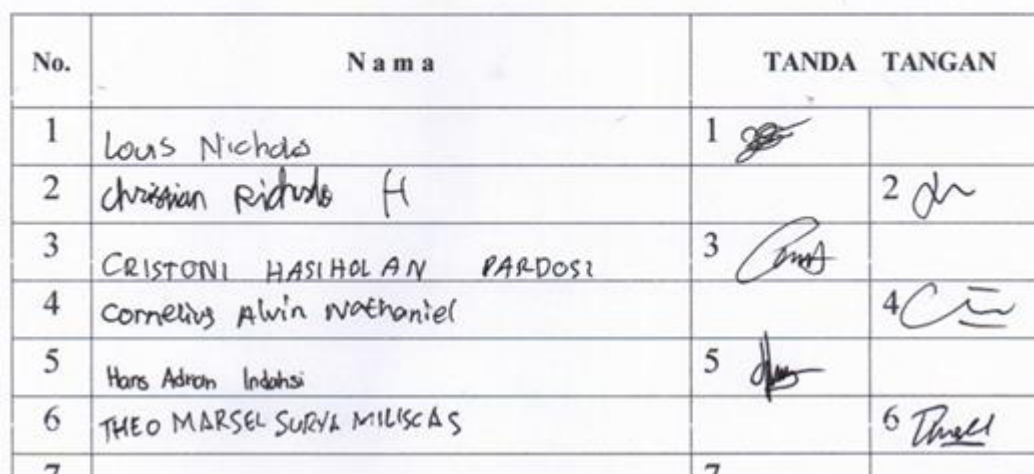 No. Nama TANDA TANGAN
1 Louis Nicholas 1
2 Christian Richardo H 2
3 CRISTONI HASIHOLAN PARDOSI 3
4 Cornelius Alvin Nathaniel 4
5 Hans Adrian Indahsi 5
6 THEO MARSEL SURYA MILISCAS 6
7 7